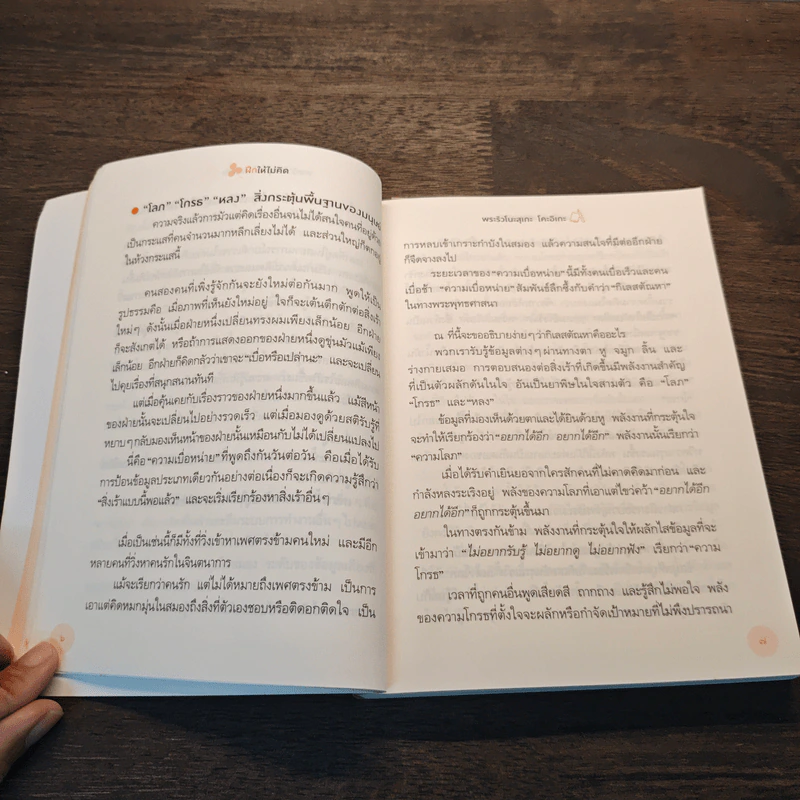 ฝึกให้ไม่คิด
"โลภ" "โกรธ" "หลง" สิ่งกระตุ้นพื้นฐานของมนุษย์
ความจริงแล้วการมัวแต่คิดเรื่องอื่นจนไม่ได้สนใจคนที่อยู่ด้วย
เป็นกระแสที่คนจำนวนมากหลีกเลี่ยงไม่ได้ และส่วนใหญ่ก็ตกอยู่
ในห้วงกระแสนี้
คนสองคนที่เพิ่งรู้จักกันจะยังใหม่ต่อกันมาก พูดให้เป็น
รูปธรรมคือ เมื่อภาพที่เห็นยังใหม่อยู่ ใจก็จะเต้นตึกตักต่อสิ่งเร้า
ใหม่ๆ ดังนั้นเมื่อฝ่ายหนึ่งเปลี่ยนทรงผมเพียงเล็กน้อย อีกฝ่าย
ก็จะสังเกตได้ หรือถ้าการแสดงออกของฝ่ายหนึ่งดูขุ่นมัวแม้เพียง
เล็กน้อย อีกฝ่ายก็คิดกลัวว่าเขาจะ"เบื่อหรือเปล่านะ" และจะเปลี่ยน
ไปคุยเรื่องที่สนุกสนานทันที
แต่เมื่อคุ้นเคยกับเรื่องราวของฝ่ายหนึ่งมากขึ้นแล้ว แม้สีหน้า
ของฝ่ายนั้นจะเปลี่ยนไปอย่างรวดเร็ว แต่เมื่อมองดูด้วยสติรับรู้ที่
หยาบๆกลับมองเห็นหน้าของฝ่ายนั้นเหมือนกับไม่ได้เปลี่ยนแปลงไป
นี่คือ"ความเบื่อหน่าย"ที่พูดถึงกันวันต่อวัน คือเมื่อได้รับ
การป้อนข้อมูลประเภทเดียวกันอย่างต่อเนื่องก็จะเกิดความรู้สึกว่า
"สิ่งเร้าแบบนี้พอแล้ว" และจะเริ่มเรียกร้องหาสิ่งเร้าอื่นๆ
เมื่อเป็นเช่นนี้ก็มีทั้งที่วิ่งเข้าหาเพศตรงข้ามคนใหม่ และมีอีก
หลายคนที่วิ่งหาคนรักในจินตนาการ
แม้จะเรียกว่าคนรัก แต่ไม่ได้หมายถึงเพศตรงข้าม เป็นการ
เอาแต่คิดหมกมุ่นในสมองถึงสิ่งที่ตัวเองชอบหรือติดอกติดใจ เป็น
๖
พระริวโนะสุเกะ โคะอิเกะ
การหลบเข้าเกราะกำบังในสมอง แล้วความสนใจที่มีต่ออีกฝ่าย
ก็จืดจางลงไป
ระยะเวลาของ"ความเบื่อหน่าย"นี้มีทั้งคนเบื่อเร็วและคน
เบื่อช้า "ความเบื่อหน่าย"สัมพันธ์ลึกซึ้งกับคำว่า"กิเลสตัณหา"
ในทางพระพุทธศาสนา
ณ ที่นี้จะขออธิบายง่ายๆว่ากิเลสตัณหาคืออะไร
พวกเรารับรู้ข้อมูลต่างๆผ่านทางตา หู จมูก ลิ้น และ
ร่างกายเสมอ การตอบสนองต่อสิ่งเร้าที่เกิดขึ้นมีพลังงานสำคัญ
ที่เป็นตัวผลักดันในใจ อันเป็นยาพิษในใจสามตัว คือ "โลภ"
"โกรธ" และ"หลง"
ข้อมูลที่มองเห็นด้วยตาและได้ยินด้วยหู พลังงานที่กระตุ้นใจ
จะทำให้เรียกร้องว่า"อยากได้อีก อยากได้อีก" พลังงานนั้นเรียกว่า
"ความโลภ"
เมื่อได้รับคำเยินยอจากใครสักคนที่ไม่คาดคิดมาก่อน และ
กำลังหลงระเริงอยู่ พลังของความโลภที่เอาแต่ไขว่คว้า"อยากได้อีก
อยากได้อีก"ก็ถูกกระตุ้นขึ้นมา
ในทางตรงกันข้าม พลังงานที่กระตุ้นใจให้ผลักไสข้อมูลที่จะ
เข้ามาว่า "ไม่อยากรับรู้ ไม่อยากดู ไม่อยากฟัง" เรียกว่า"ความ
โกรธ"
เวลาที่ถูกคนอื่นพูดเสียดสี ถากถาง และรู้สึกไม่พอใจ พลัง
ของความโกรธที่ตั้งใจจะผลักหรือกำจัดเป้าหมายที่ไม่พึงปรารถนา
๗